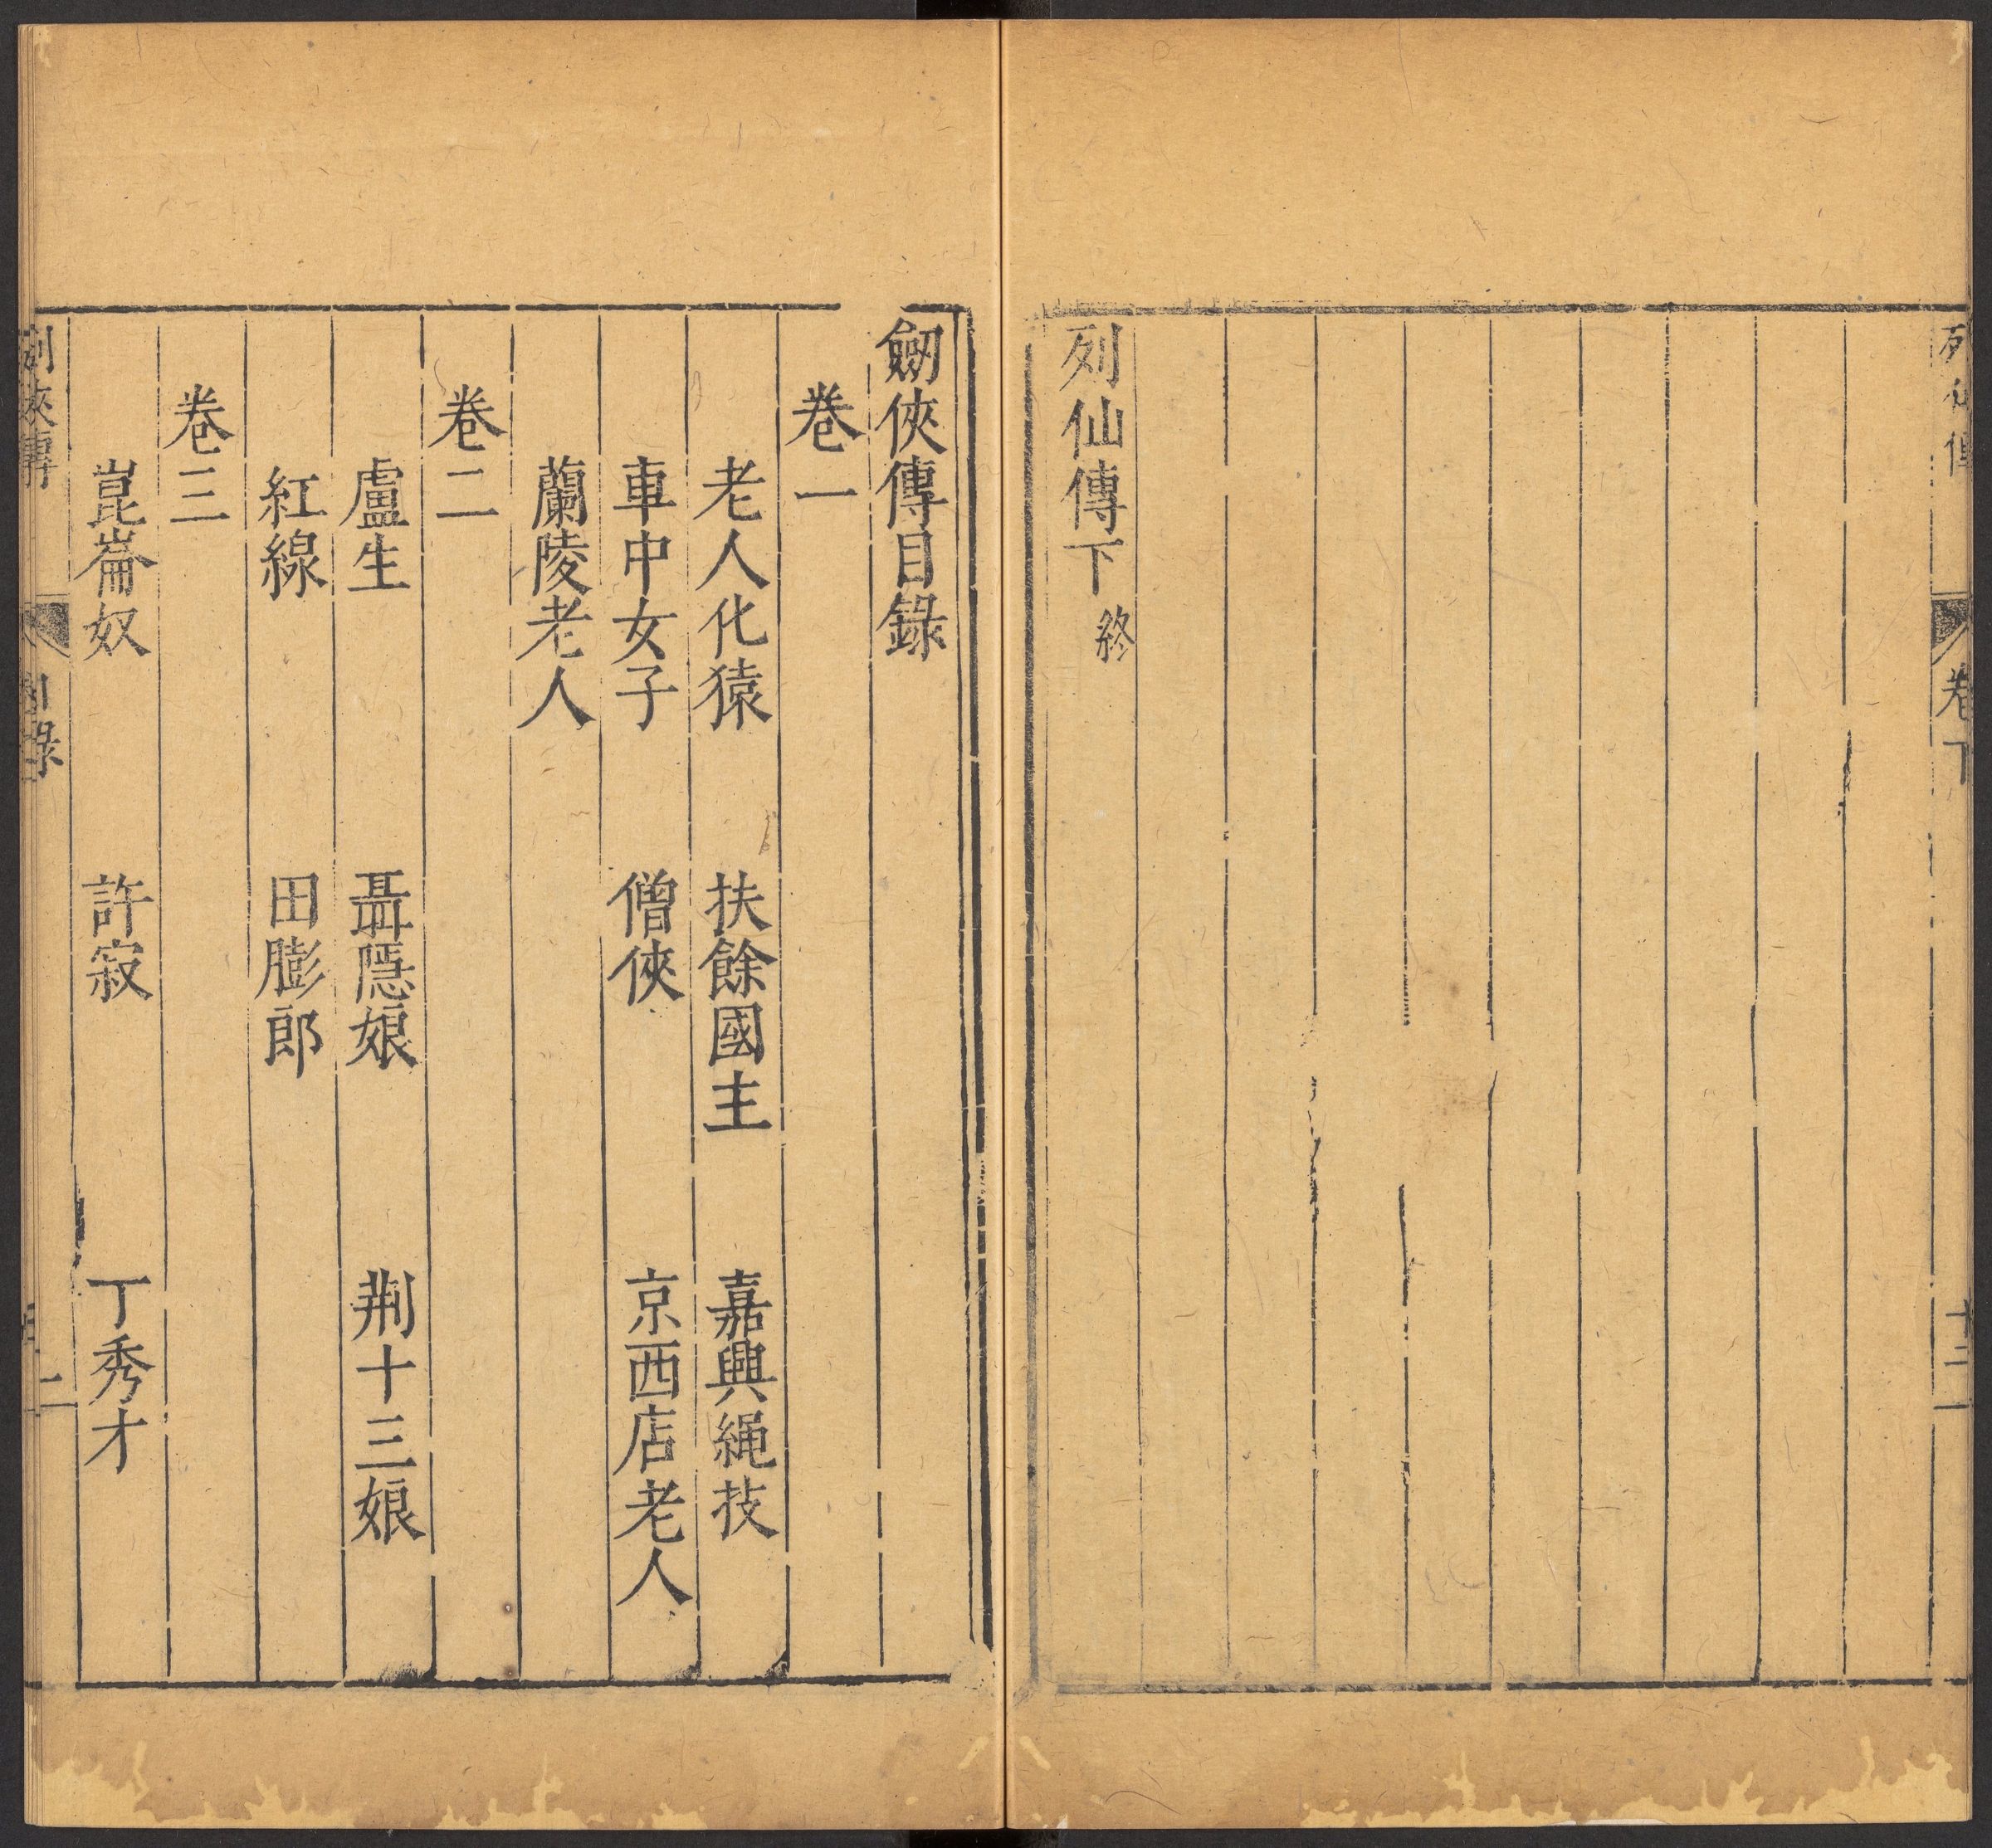 列仙傳下 終
卷下
劒俠傳目錄
卷一
老人化猿 扶餘國主 嘉興繩技
車中女子 僧俠 京西店老人
蘭陵老人
卷二
盧生 聶隱娘 荆十三娘
紅線 田膨郎
卷三
崑崙奴 許寂 丁秀才
俠傳
目錄